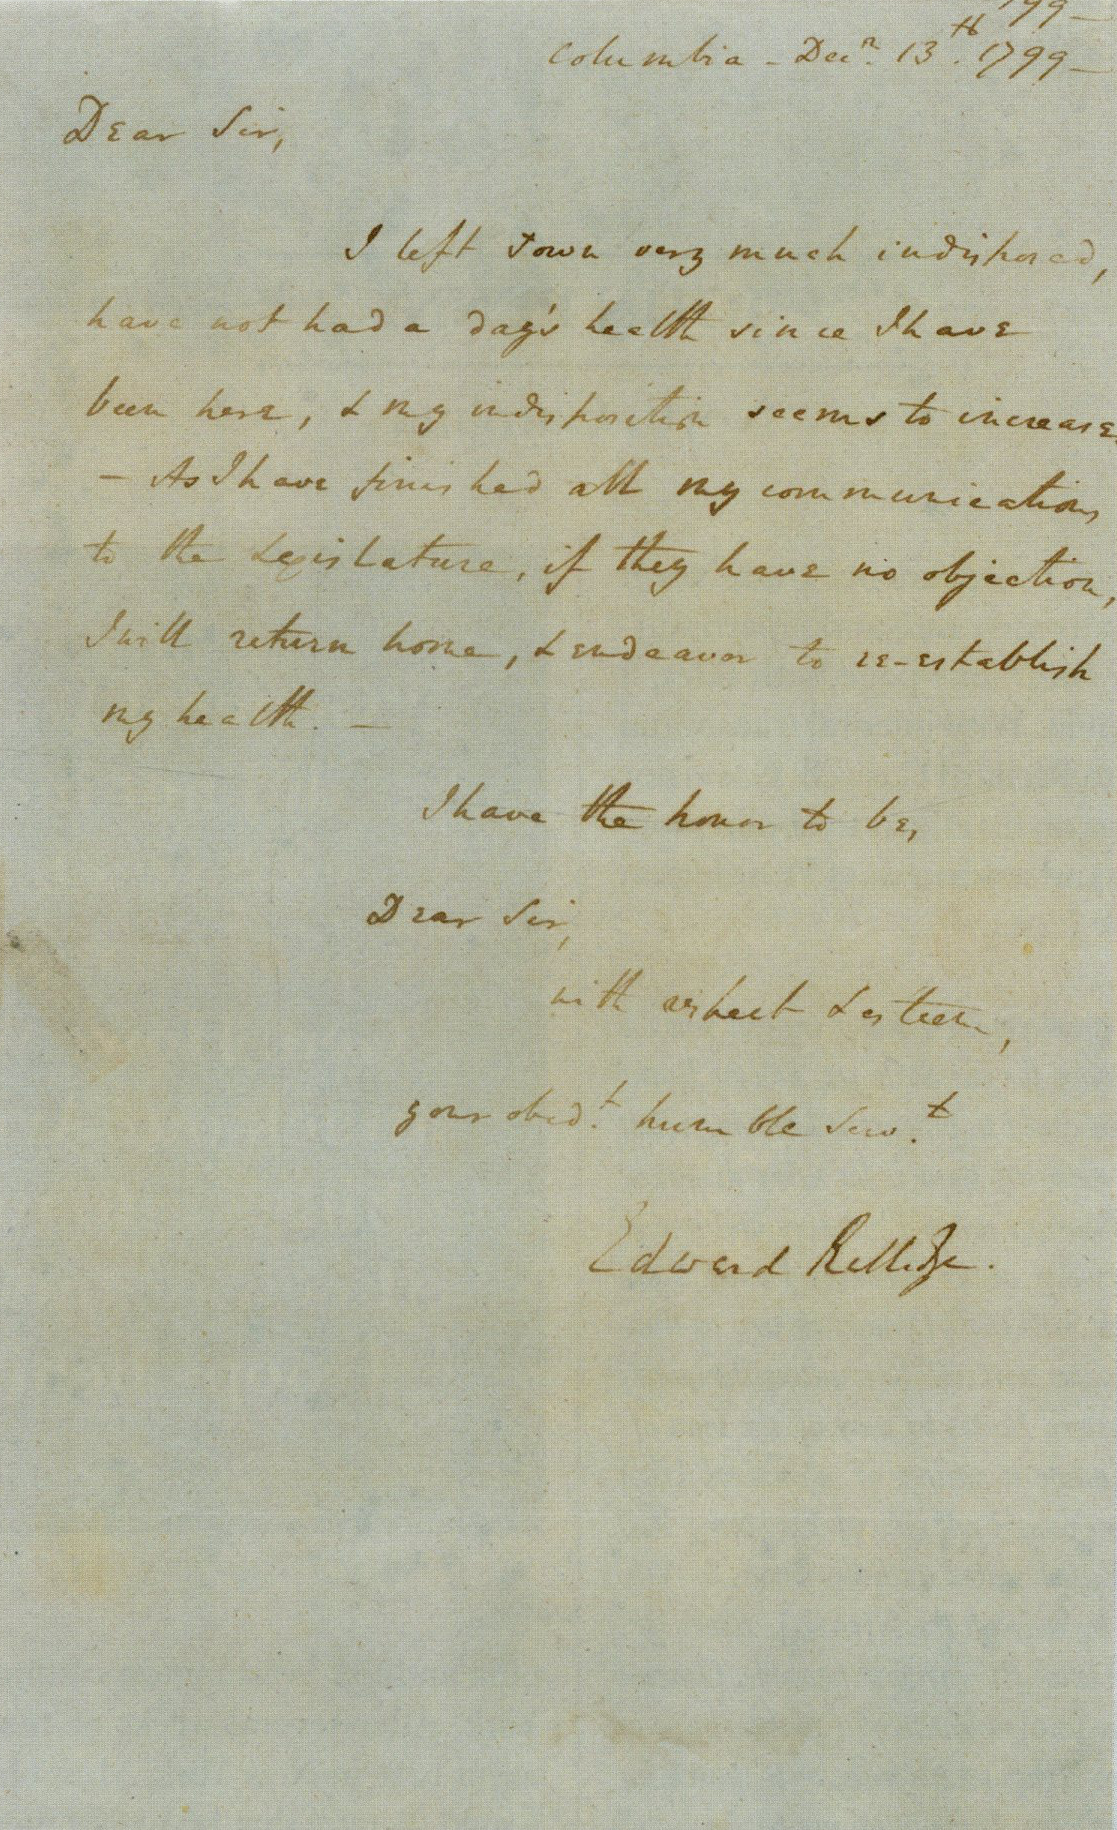 99—
Columbia — Decr. 13th. 1799—
Dear Sir,
I left Town very much indisposed,
have not had a day's health since I have
been here, & my indisposition seems to increase
— As I have finished all my communications
to the Legislature, if they have no objection,
I will return home, & endeavor to re-establish
my health. —
I have the honor to be,
Dear Sir,
with respect & esteem,
your obedt. humble Servt.
Edward Rutledge.